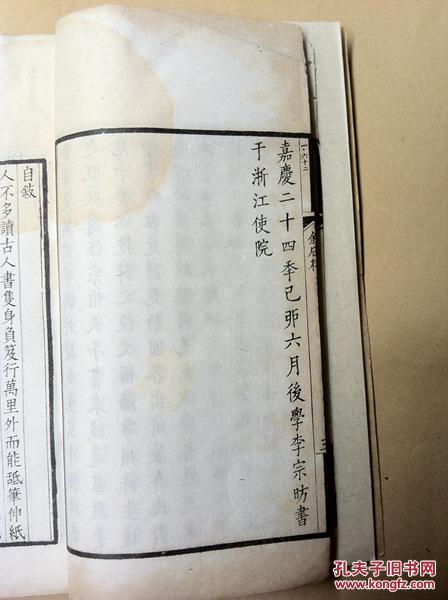 嘉慶二十四秊己卯六月後學李宗昉書
于浙江使院
自敍
人不多讀古人書隻身負笈行萬里外而能舐筆伸紙
三
孔夫子旧书网
www.kongfz.com